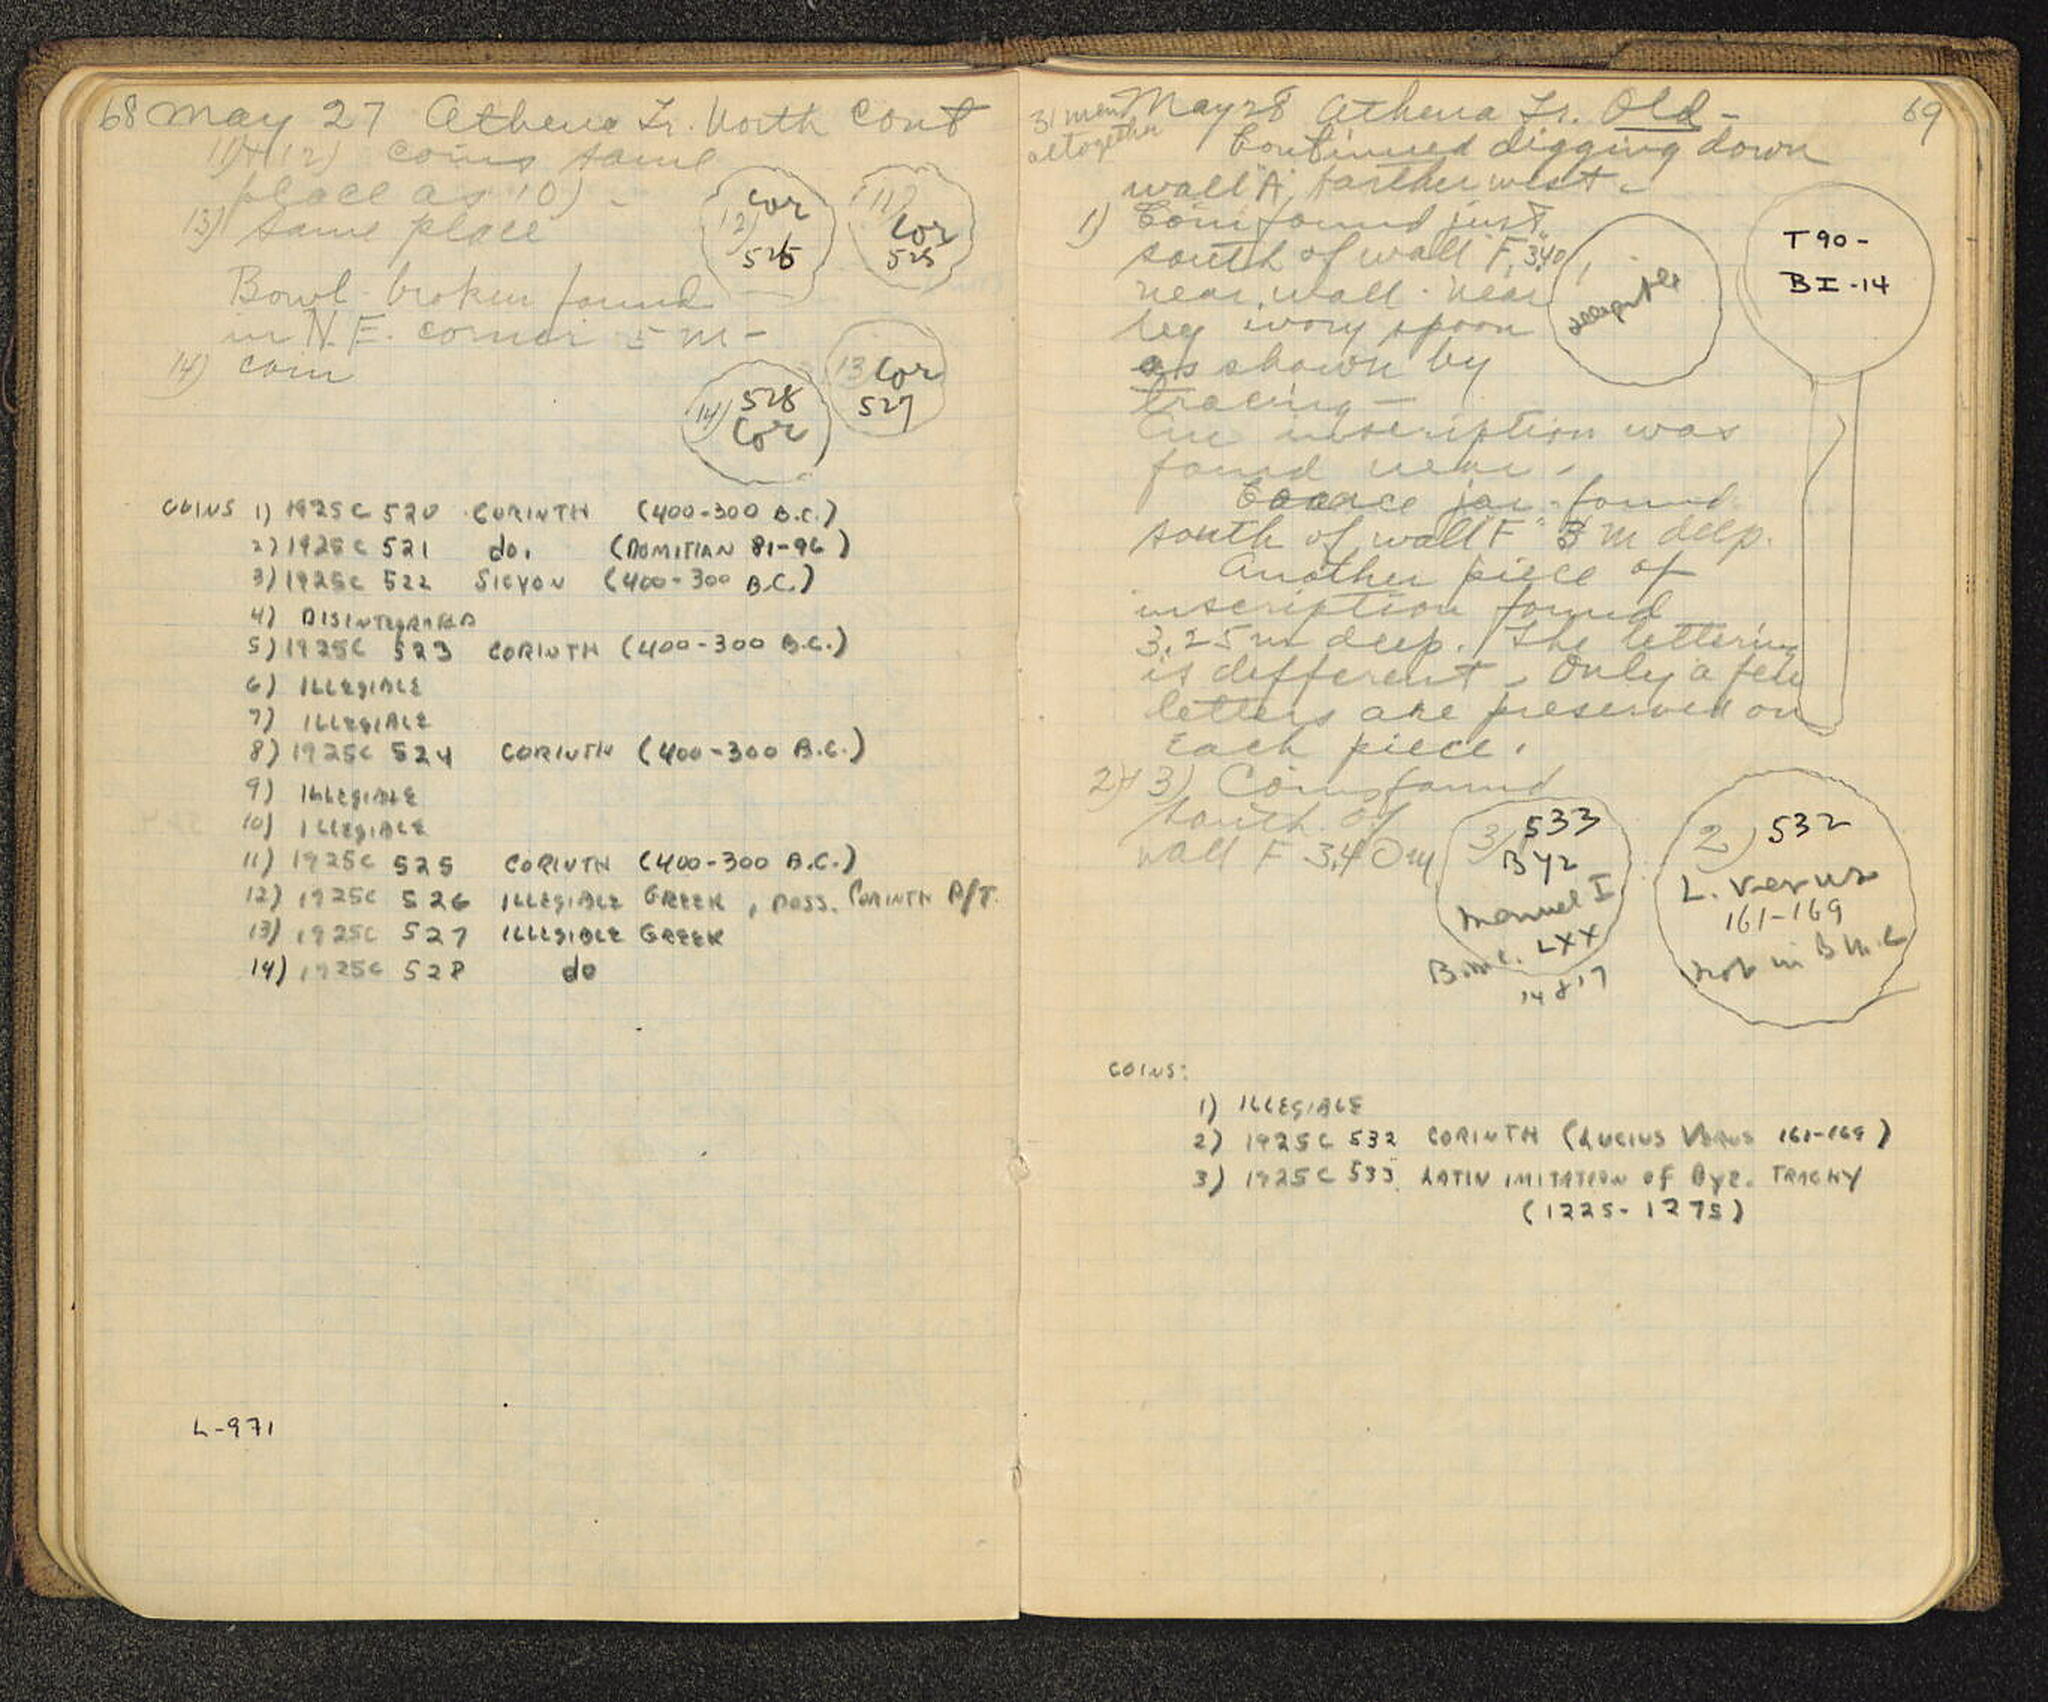 68 May 27 Athena Tr. North Cont
11)+12) coins same
place as 10) -
13) same place
Bowl - broken found
in N.E. corner 5 m -
14) coin
Cor
12)
526
11)
Cor
525
13 Cor
527
14) 528
Cor
COINS 1) 1925C 520 CORINTH (400-300 B.C.)
2) 1925C 521 do. (DOMITIAN 81-96)
3) 1925C 522 SICYON (400-300 B.C.)
4) DISINTEGRATED
5) 1925C 523 CORINTH (400-300 B.C.)
6) ILLEGIBLE
7) ILLEGIBLE
8) 1925C 524 CORINTH (400-300 B.C.)
9) ILLEGIBLE
10) ILLEGIBLE
11) 1925C 525 CORINTH (400-300 B.C.)
12) 1925C 526 ILLEGIBLE GREEK, POSS. CORINTH P/T.
13) 1925C 527 ILLEGIBLE GREEK
14) 1925C 528 do
L-971
31 men
altogether
May 28 Athena Tr. Old - 69
Continued digging down
wall "A" farther west -
1) Coin found just
south of wall "F" 3.40
near wall - near
leg ivory spoon
as shown by
tracing -
One inscription was
found near -
jar found
south of wall F 3 m deep.
Another piece of
inscription found
3.25 m deep. The lettering
is different - Only a few
letters are preserved on
each piece.
2)+3) Coins found
south of
wall F 3.40 m
1
illegible
T 90-
BI-14
3) 533
Byz
Manuel I
B.M.C. LXX
14 8 17
2) 532
L. Verus
161-169
not in B.M.C
COINS:
1) ILLEGIBLE
2) 1925C 532 CORINTH (LUCIUS VERUS 161-169)
3) 1925C 533 LATIN IMITATION OF Byz. TRACHY
(1225-1275)